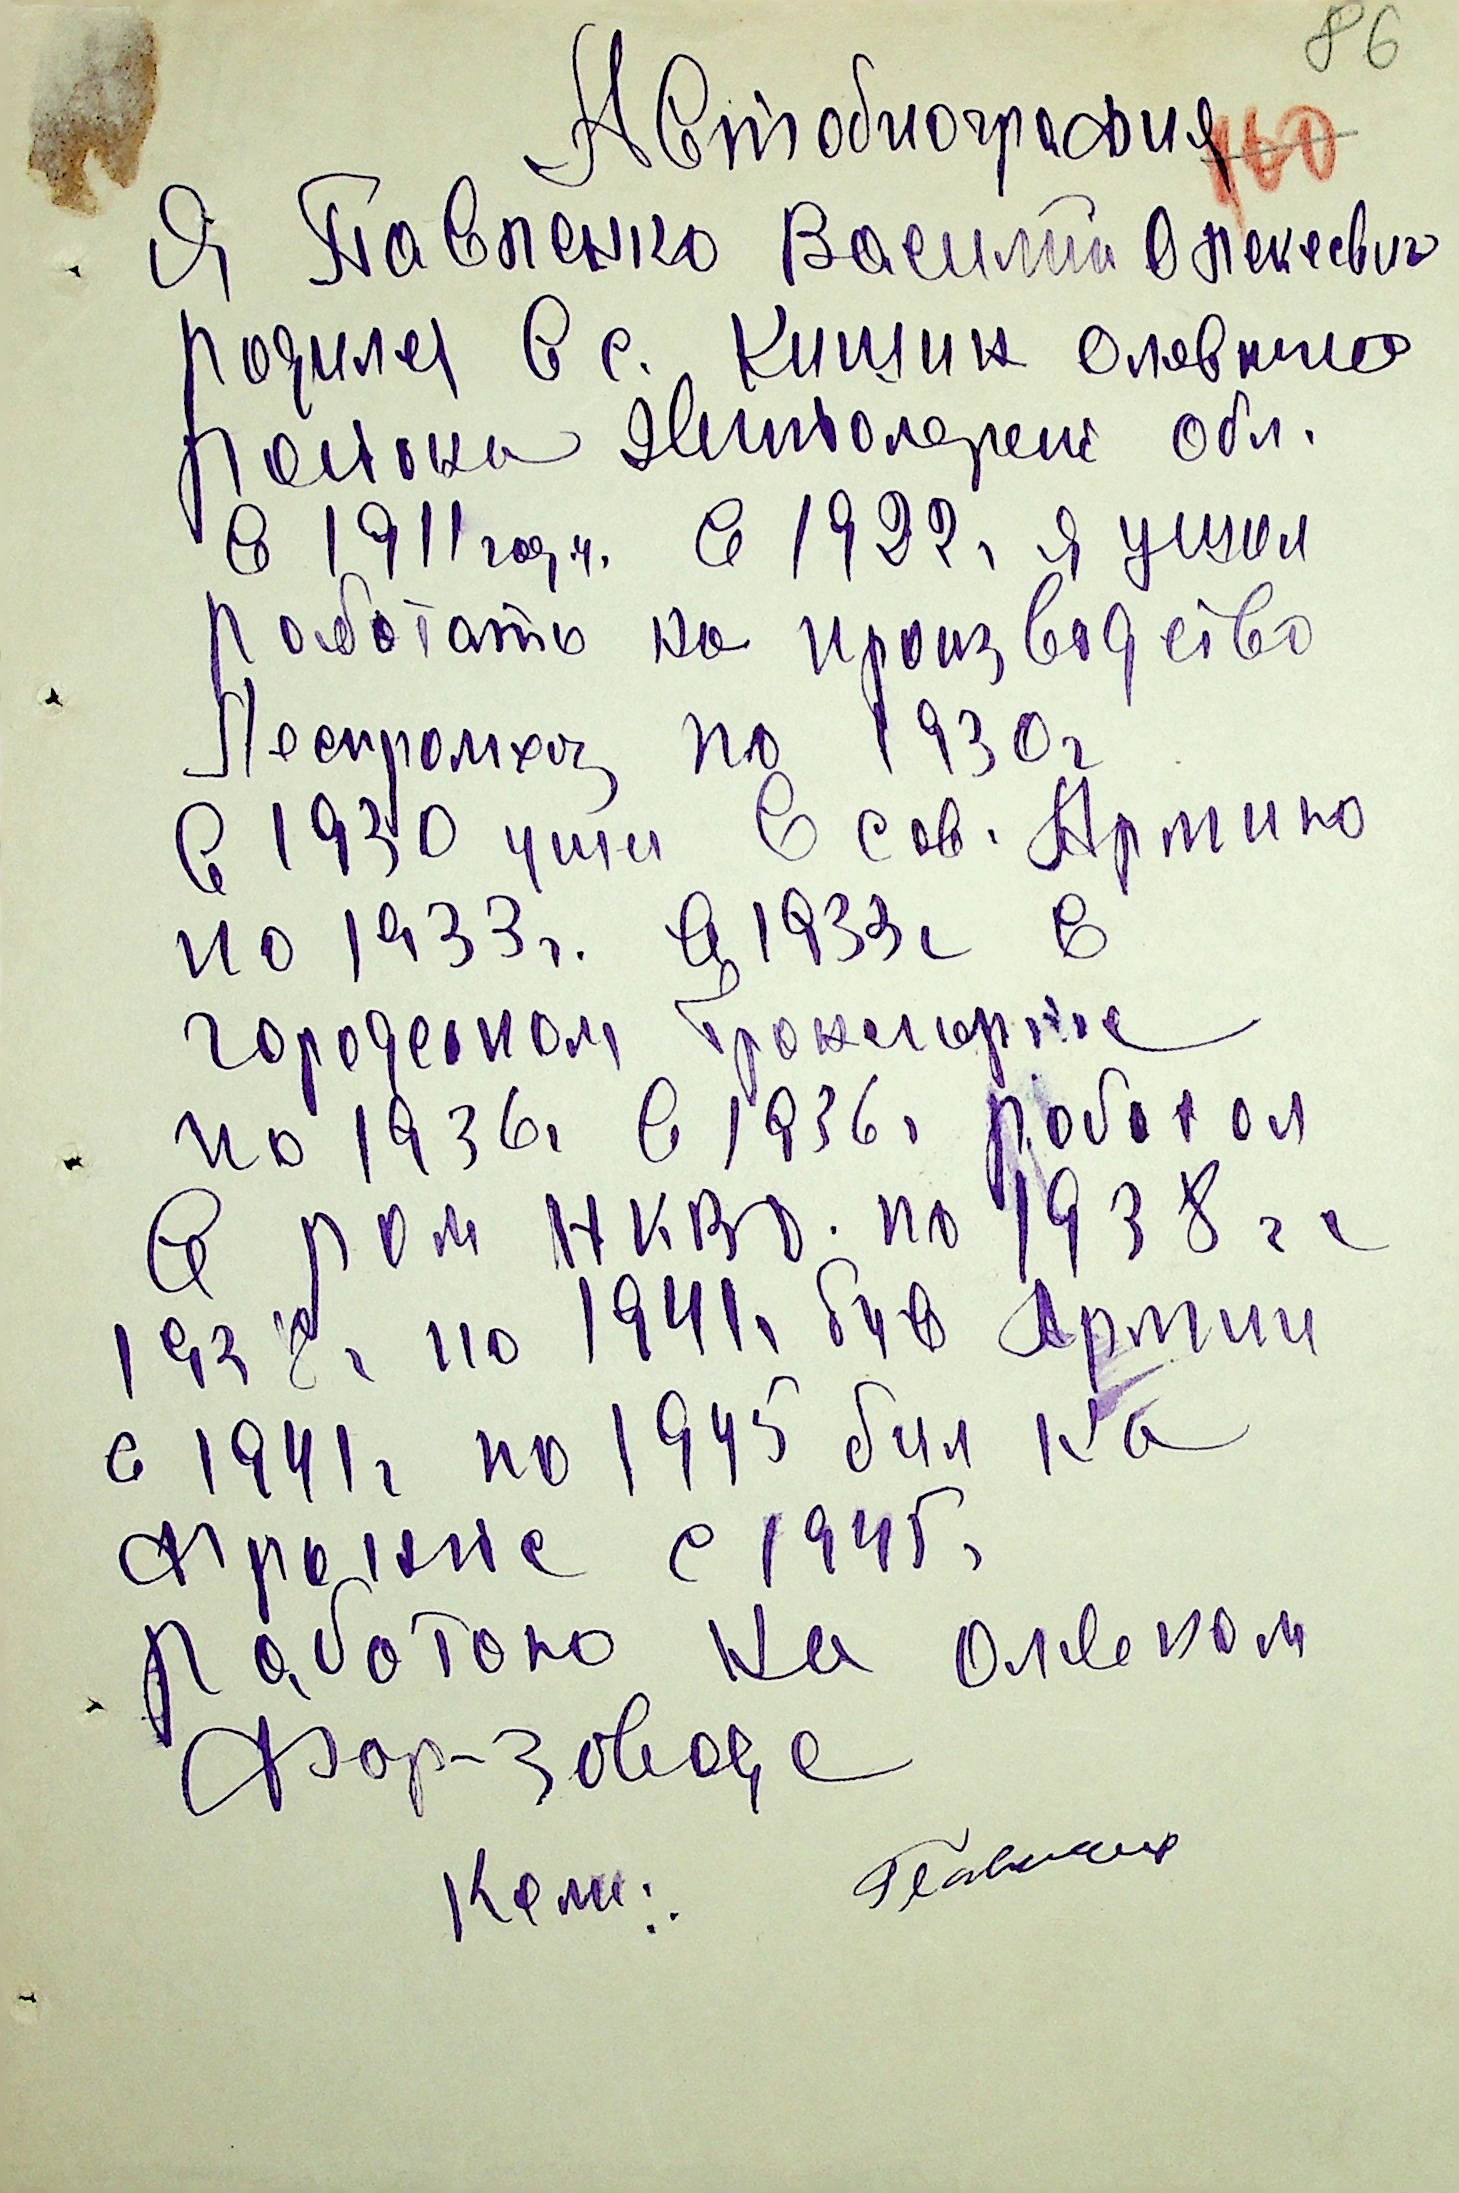 86
Автобиография
160
Я Павленко Василий Олексеевич
родился в с. Кишин Олевского
района Житомерск обл.
в 1911 году. в 1922г я ушол
работать на производство
Леспромхоз по 1930г
в 1930 ушел в сов. Армию
по 1933г. в 1933г в
городском
по 1936г в 1936г работол
в НКВД. по 1938 г с
1938г по 1941г був Армии
с 1941г по 1945 бил на
фронте с 1945г
работою на олевском
Фар-заводе